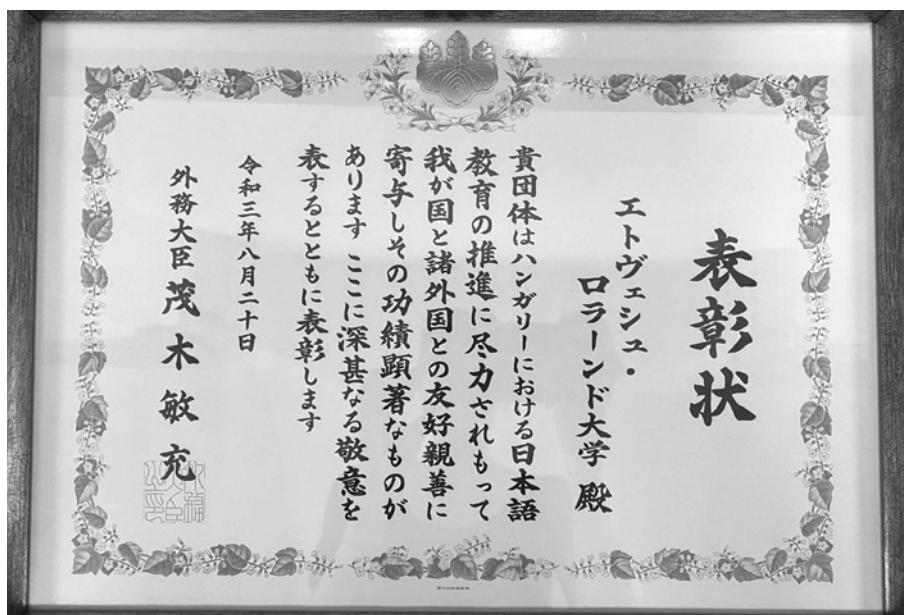 表彰状
エトヴェシュ・
ロラーンド大学 殿
貴団体はハンガリーにおける日本語
教育の推進に尽力されもって
我が国と諸外国との友好親善に
寄与しその功績顕著なものが
あります ここに深甚なる敬意を
表するとともに表彰します
令和三年八月二十日
外務大臣 茂木敏充